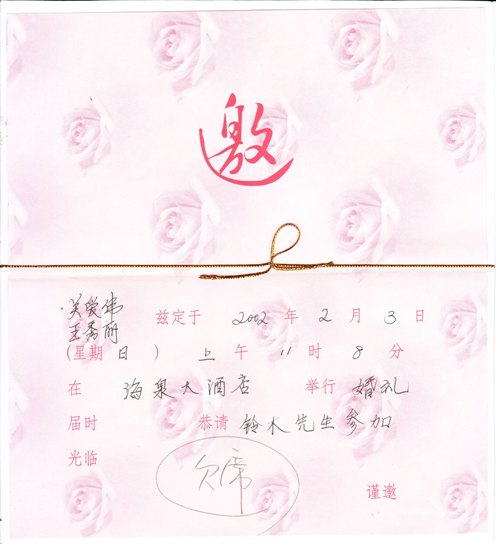 邀
关爱伟
王秀丽
兹定于 2002 年 2 月 3 日
(星期 日 ) 上 午 11 时 8 分
在 海泉大酒店 举行 婚礼
届时 恭请 铃木先生参加
光临
欠席
谨邀